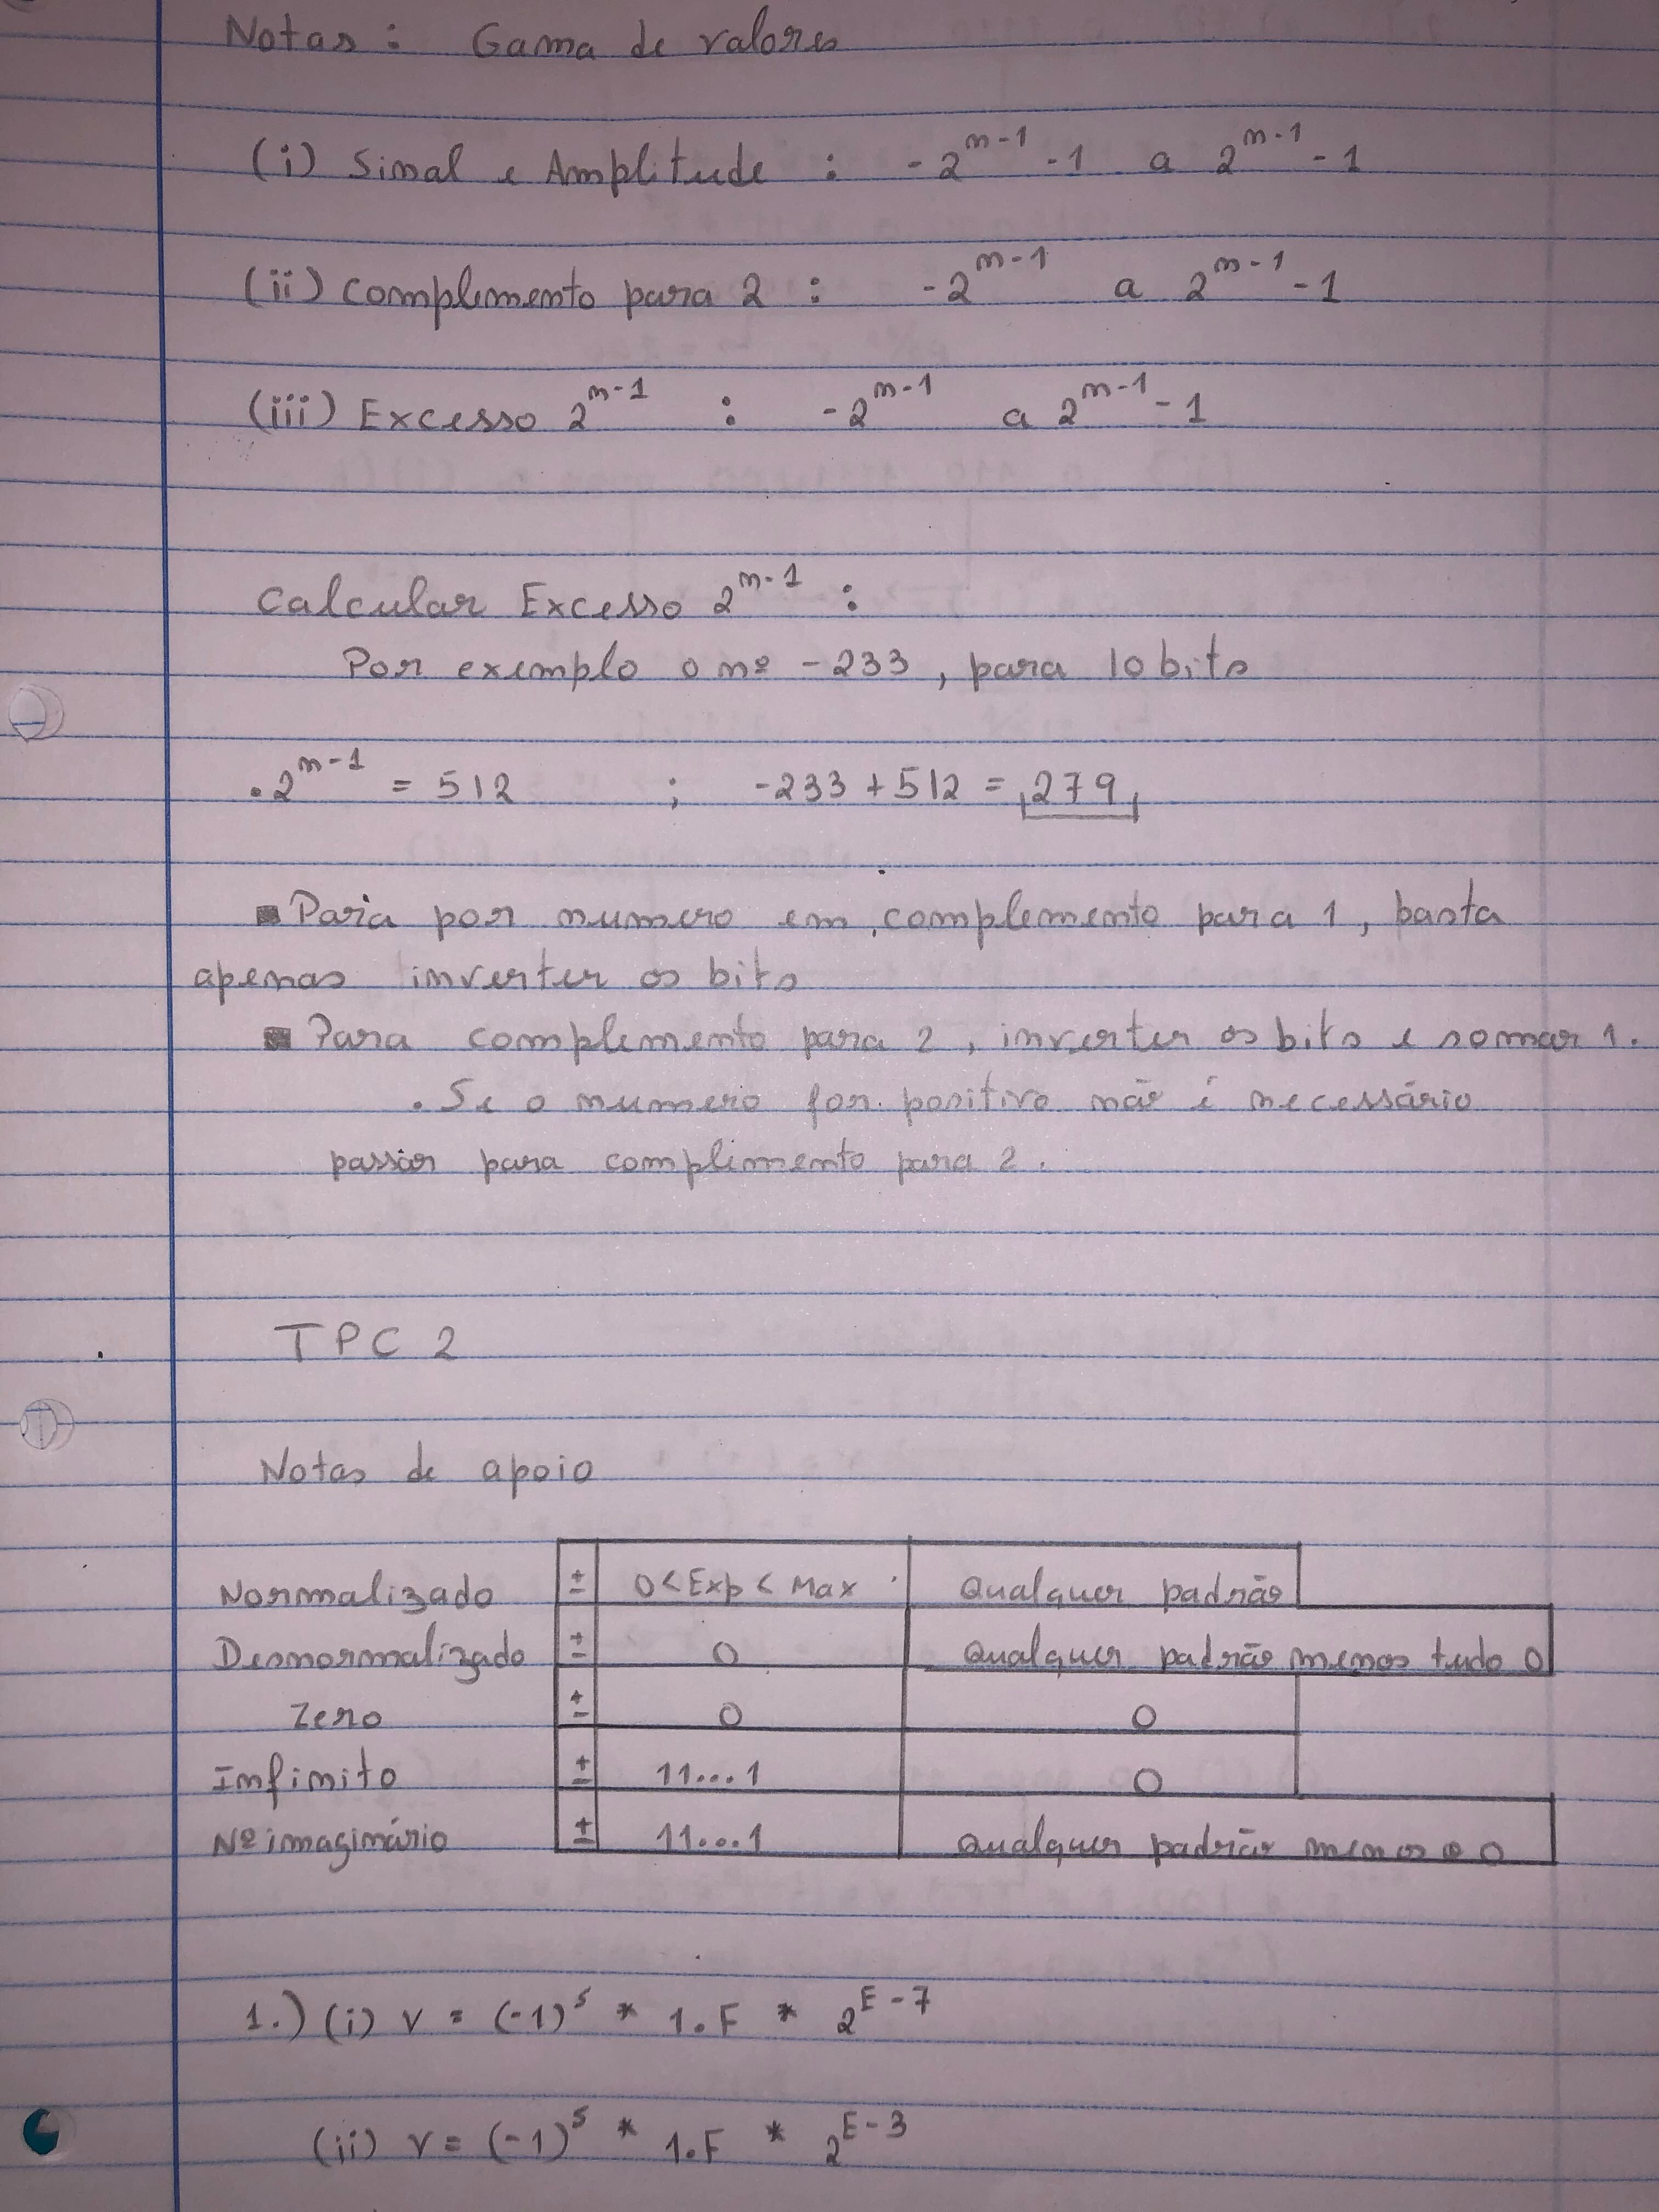 Notas: Gama de valores
(i) Sinal e Amplitude : -2^n-1 -1 a 2^n-1 -1
(ii) Complemento para 2 : -2^n-1 a 2^n-1 -1
(iii) Excesso 2^n-1 : -2^n-1 a 2^n-1 -1
Calcular Excesso 2^n-1 :
Por exemplo o nº -233, para 10 bits
. 2^n-1 = 512 ; -233 + 512 = 279
▪ Para por numero em complemento para 1, basta
apenas inverter os bits
▪ Para complemento para 2, inverter os bits e somar 1.
. Se o numero for positivo não é necessário
passar para complimento para 2.
TPC 2
Notas de apoio
Normalizado ± 0 < Exp < Max Qualquer padrão
Desnormalizado ± 0 Qualquer padrão menos tudo 0
Zero ± 0 0
Infinito ± 11...1 0
Nº imaginário ± 11...1 Qualquer padrão menos o 0
1.) (i) V = (-1)^S * 1.F * 2^E-7
(ii) V = (-1)^S * 1.F * 2^E-3